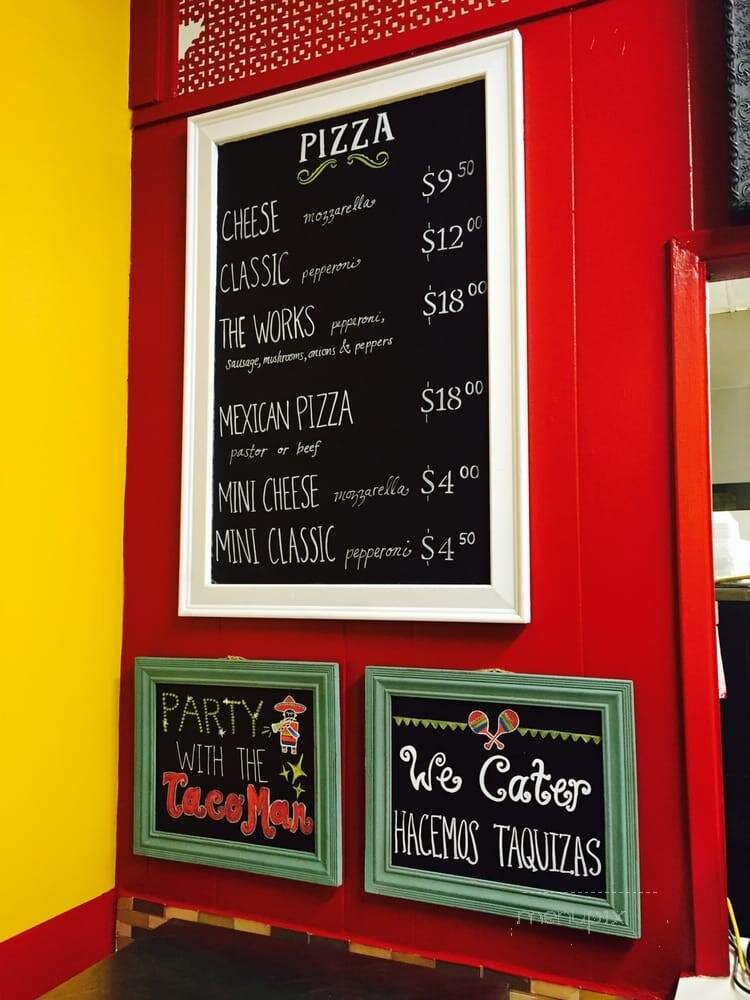 PIZZA
CHEESE mozzarella $9 50
CLASSIC pepperoni $12 00
THE WORKS pepperoni, $18 00
sausage, mushrooms, onions & peppers
MEXICAN PIZZA $18 00
pastor or beef
MINI CHEESE mozzarella $4 00
MINI CLASSIC pepperoni $4 50
PARTY
WITH THE
TacoMan
We Cater
HACEMOS TAQUIZAS
menupix